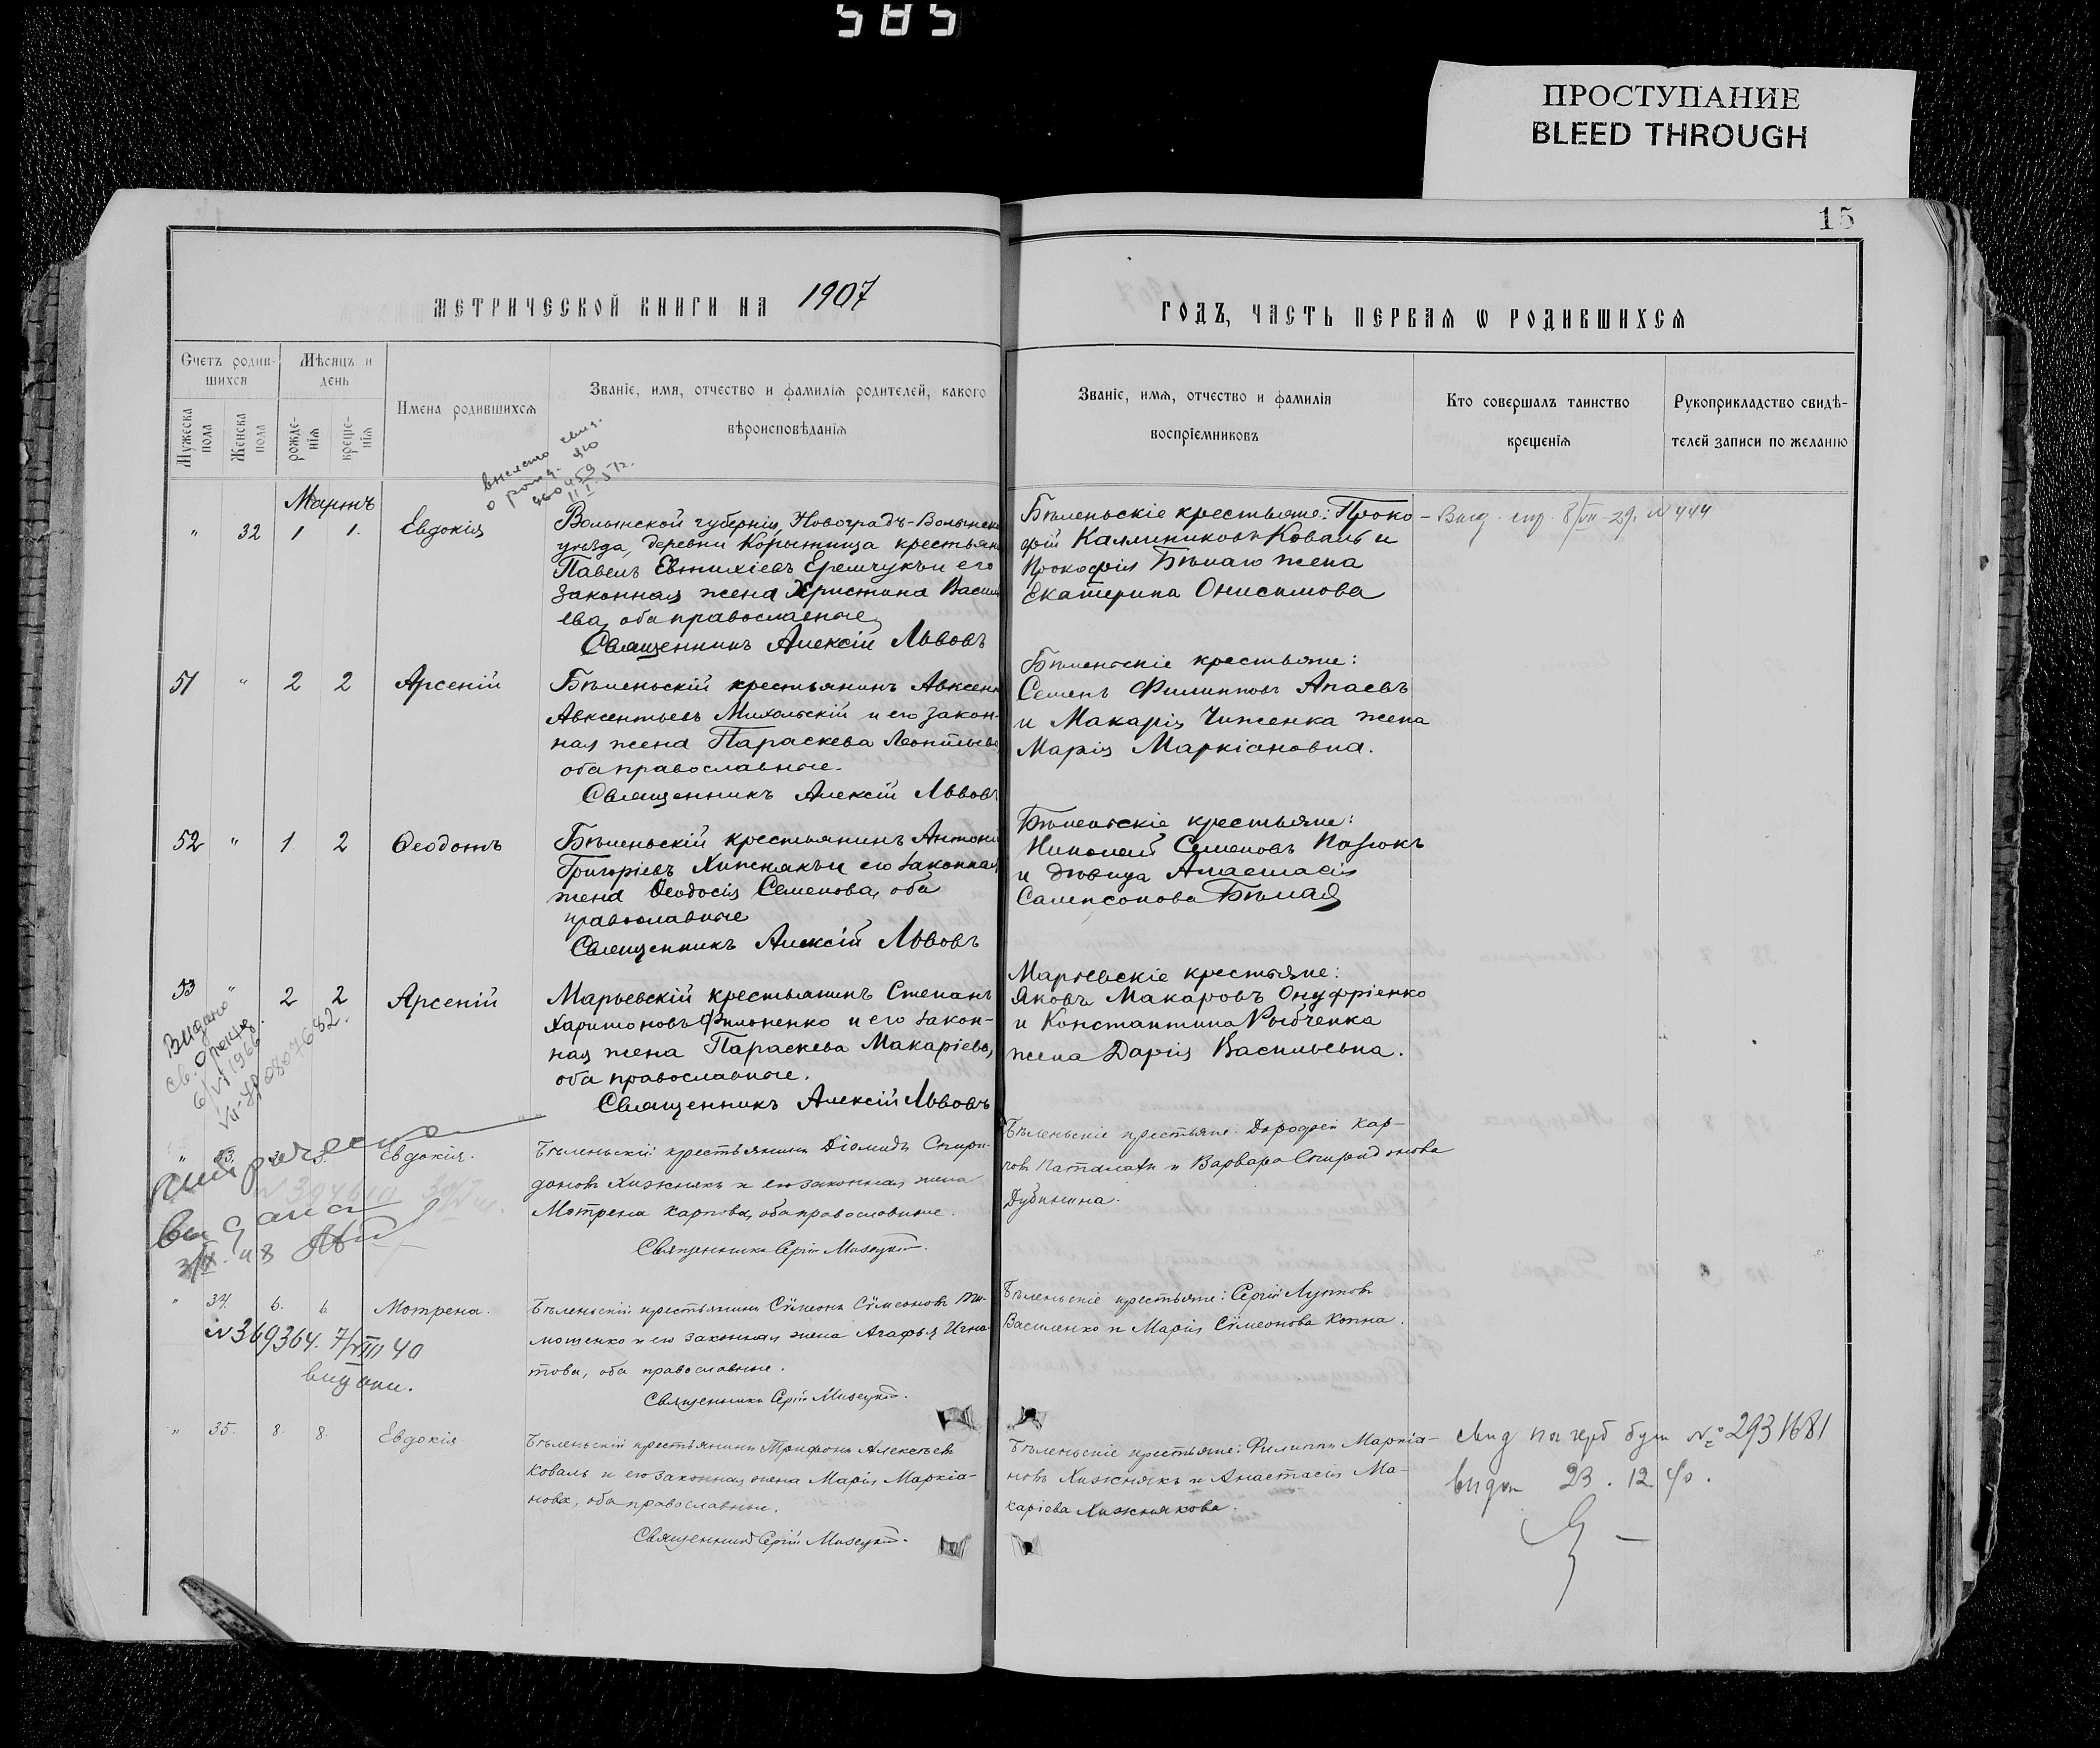 585
ПРОСТУПАНИЕ
BLEED THROUGH
15
МЕТРИЧЕСКОЙ КНИГИ НА 1907
ГОДЪ, ЧАСТЬ ПЕРВАЯ Ѡ РОДИВШИХСЯ
Счетъ родив-
шихся
Мѣсяцъ и
день
Мужеска пола
Женска пола
рожде-
нія
креще-
нія
Имена родившихся
Званіе, имя, отчество и фамилія родителей, какого
вѣроисповѣданія
Званіе, имя, отчество и фамилія
воспріемниковъ
Кто совершалъ таинство
крещенія
Рукоприкладство свидѣ-
телей записи по желанію
Мартъ
" 32 1 1. Евдокія
Волынской губерніи, Новоградъ-Волынска
уѣзда, деревни Корытища крестьян
Павелъ Евтихіевъ Еремчукъ и его
законная жена Христина Васил
ева, оба православные
Священникъ Алексій Львовъ
Бѣленьскіе крестьяне: Проко-
фій Каллиниковъ Коваль и
Прокофія Бѣлаго жена
Екатерина Онисимова
51 " 2 2 Арсеній
Бѣленьскій крестьянинъ Авксен
Авксентьевъ Михальскій и его закон-
ная жена Параскева Леонтьева
оба православные.
Священникъ Алексій Львовъ
Бѣленьскіе крестьяне:
Семенъ Филипповъ Апаевъ
и Макарія Чиженка жена
Марія Маркіановна.
52 " 1 2 Ѳеодотъ
Бѣленьскій крестьянинъ Антоні
Григоріевъ Хижнякъ и его законная
жена Ѳеодосія Семенова, оба
православные
Священникъ Алексій Львовъ
Бѣленьскіе крестьяне:
Николай Семеновъ Пазюкъ
и дѣвица Анастасія
Сампсонова Бѣлая
53 " 2 2 Арсеній
Марьевскій крестьянинъ Степанъ
Харитоновъ Филоненко и его закон-
ная жена Параскева Макаріева,
оба православные.
Священникъ Алексій Львовъ
Марьевскіе крестьяне:
Яковъ Макаровъ Онуфріенко
и Константина Рыбченка
жена Дарія Васильевна.
Видано
" 33. 3. 3. Евдокія.
Бѣленьскій крестьянинъ Діомидъ Спири-
доновъ Хижнякъ и его законная жена
Мотрена Карпова, оба православные.
Священникъ Сергій
Бѣленьскіе крестьяне: Дорофей Кар-
повъ и Варвара Спиридонова
Дубинина.
видана
" 34. 6. 6. Мотрена.
Бѣленьскій крестьянинъ Сѵмеонъ Сѵмеоновъ Ти-
мошенко и его законная жена Агафья Игна-
това, оба православные.
Священникъ Сергій
Бѣленьскіе крестьяне: Сергій Луппов
Василенко и Марія Сѵмеонова Копна.
N 369364. 7/VIII 40
видани.
" 35. 8. 8. Евдокія
Бѣленьскій крестьянинъ Трифонъ Алексѣевъ
Коваль и его законная жена Марія Маркіа-
нова, оба православные.
Священникъ Сергій
Бѣленьскіе крестьяне: Филиппъ Маркіа-
новъ Хижнякъ и Анастасія Ма-
каріева Хижнякова.
№ 2931681
видан 23. 12. 40.